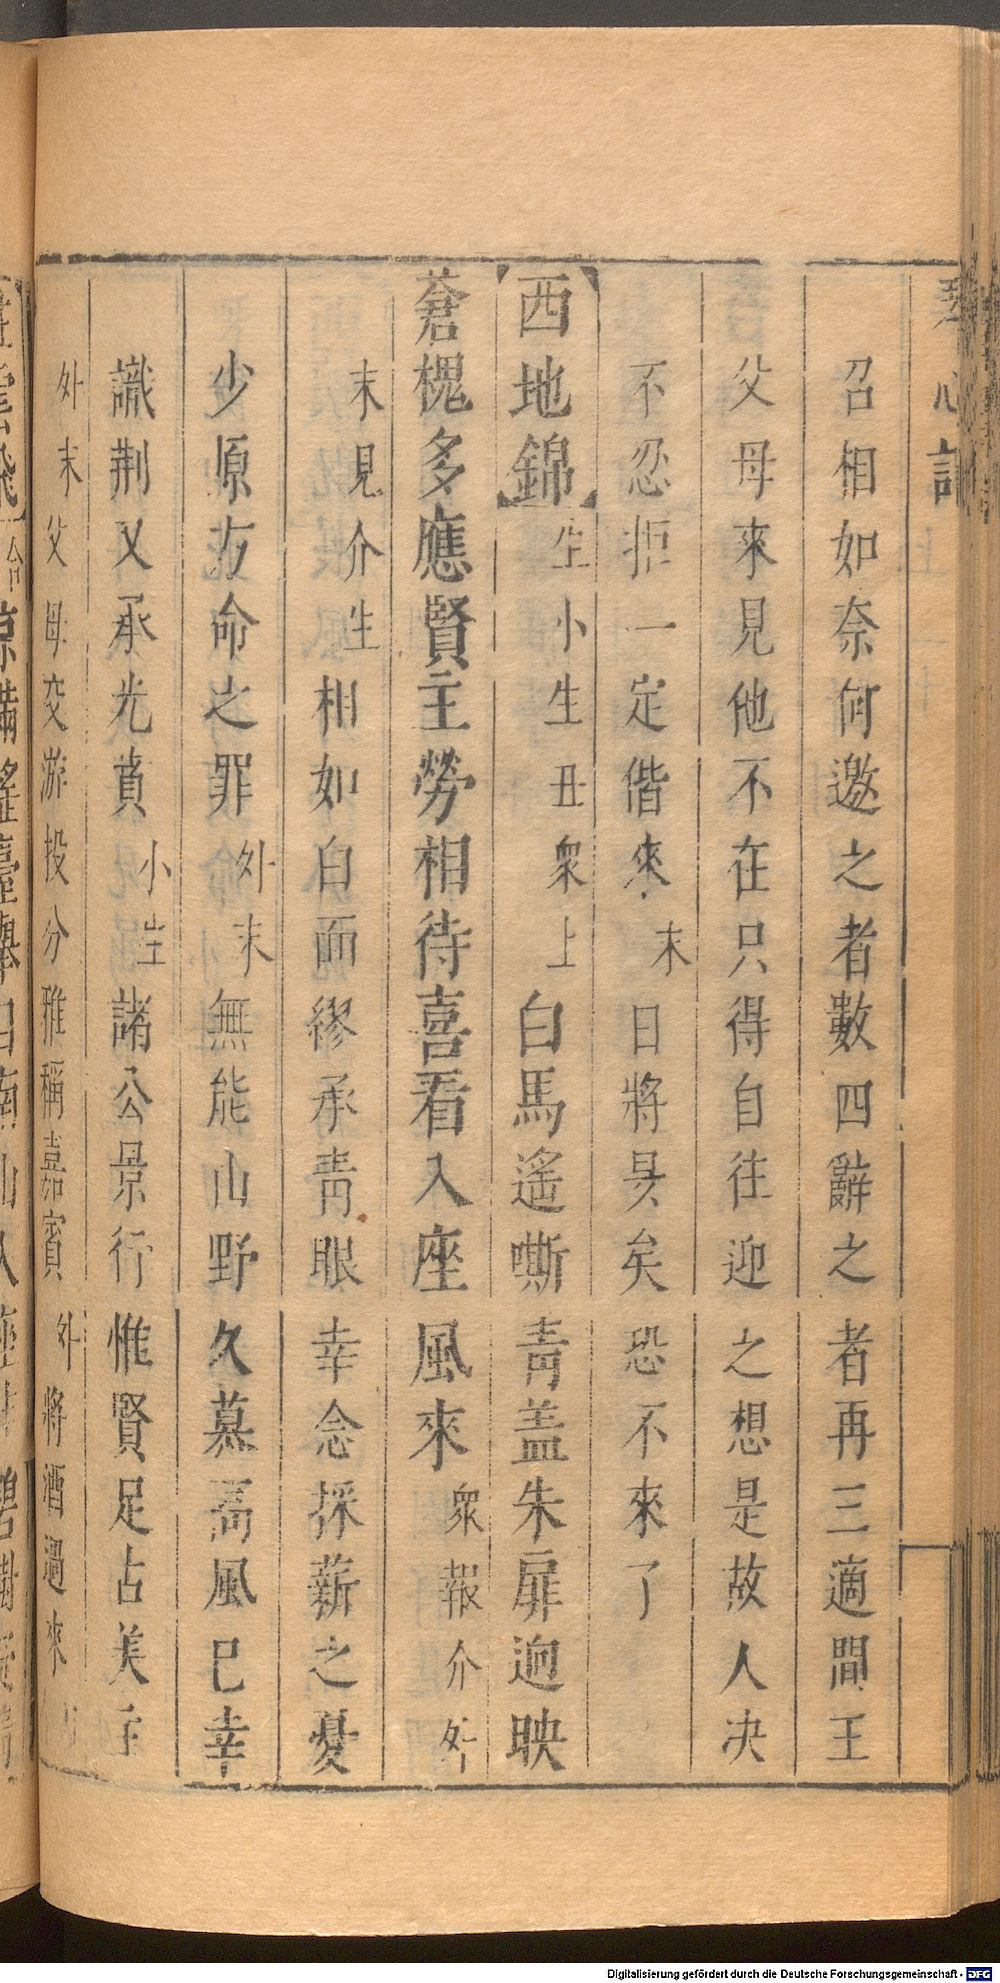 琴心記
召相如奈何邀之者數四辭之者再三適間王
父母來見他不在只得自往迎之想是故人决
不忍拒一定偕來末日將昃矣恐不來了
【西地錦】生小生丑衆上白馬遙嘶青盖朱扉迥映
蒼槐多應賢主勞相待喜看入座風來衆報介外
末見介生相如白面繆承青眼幸念採薪之憂
少原方命之罪外末無能山野久慕高風巳幸
識荆又承光賁小生諸公景行惟賢足占美主
外末父母交游投分雅稱嘉賓外將酒過來
Digitalisierung gefördert durch die Deutsche Forschungsgemeinschaft - DFG